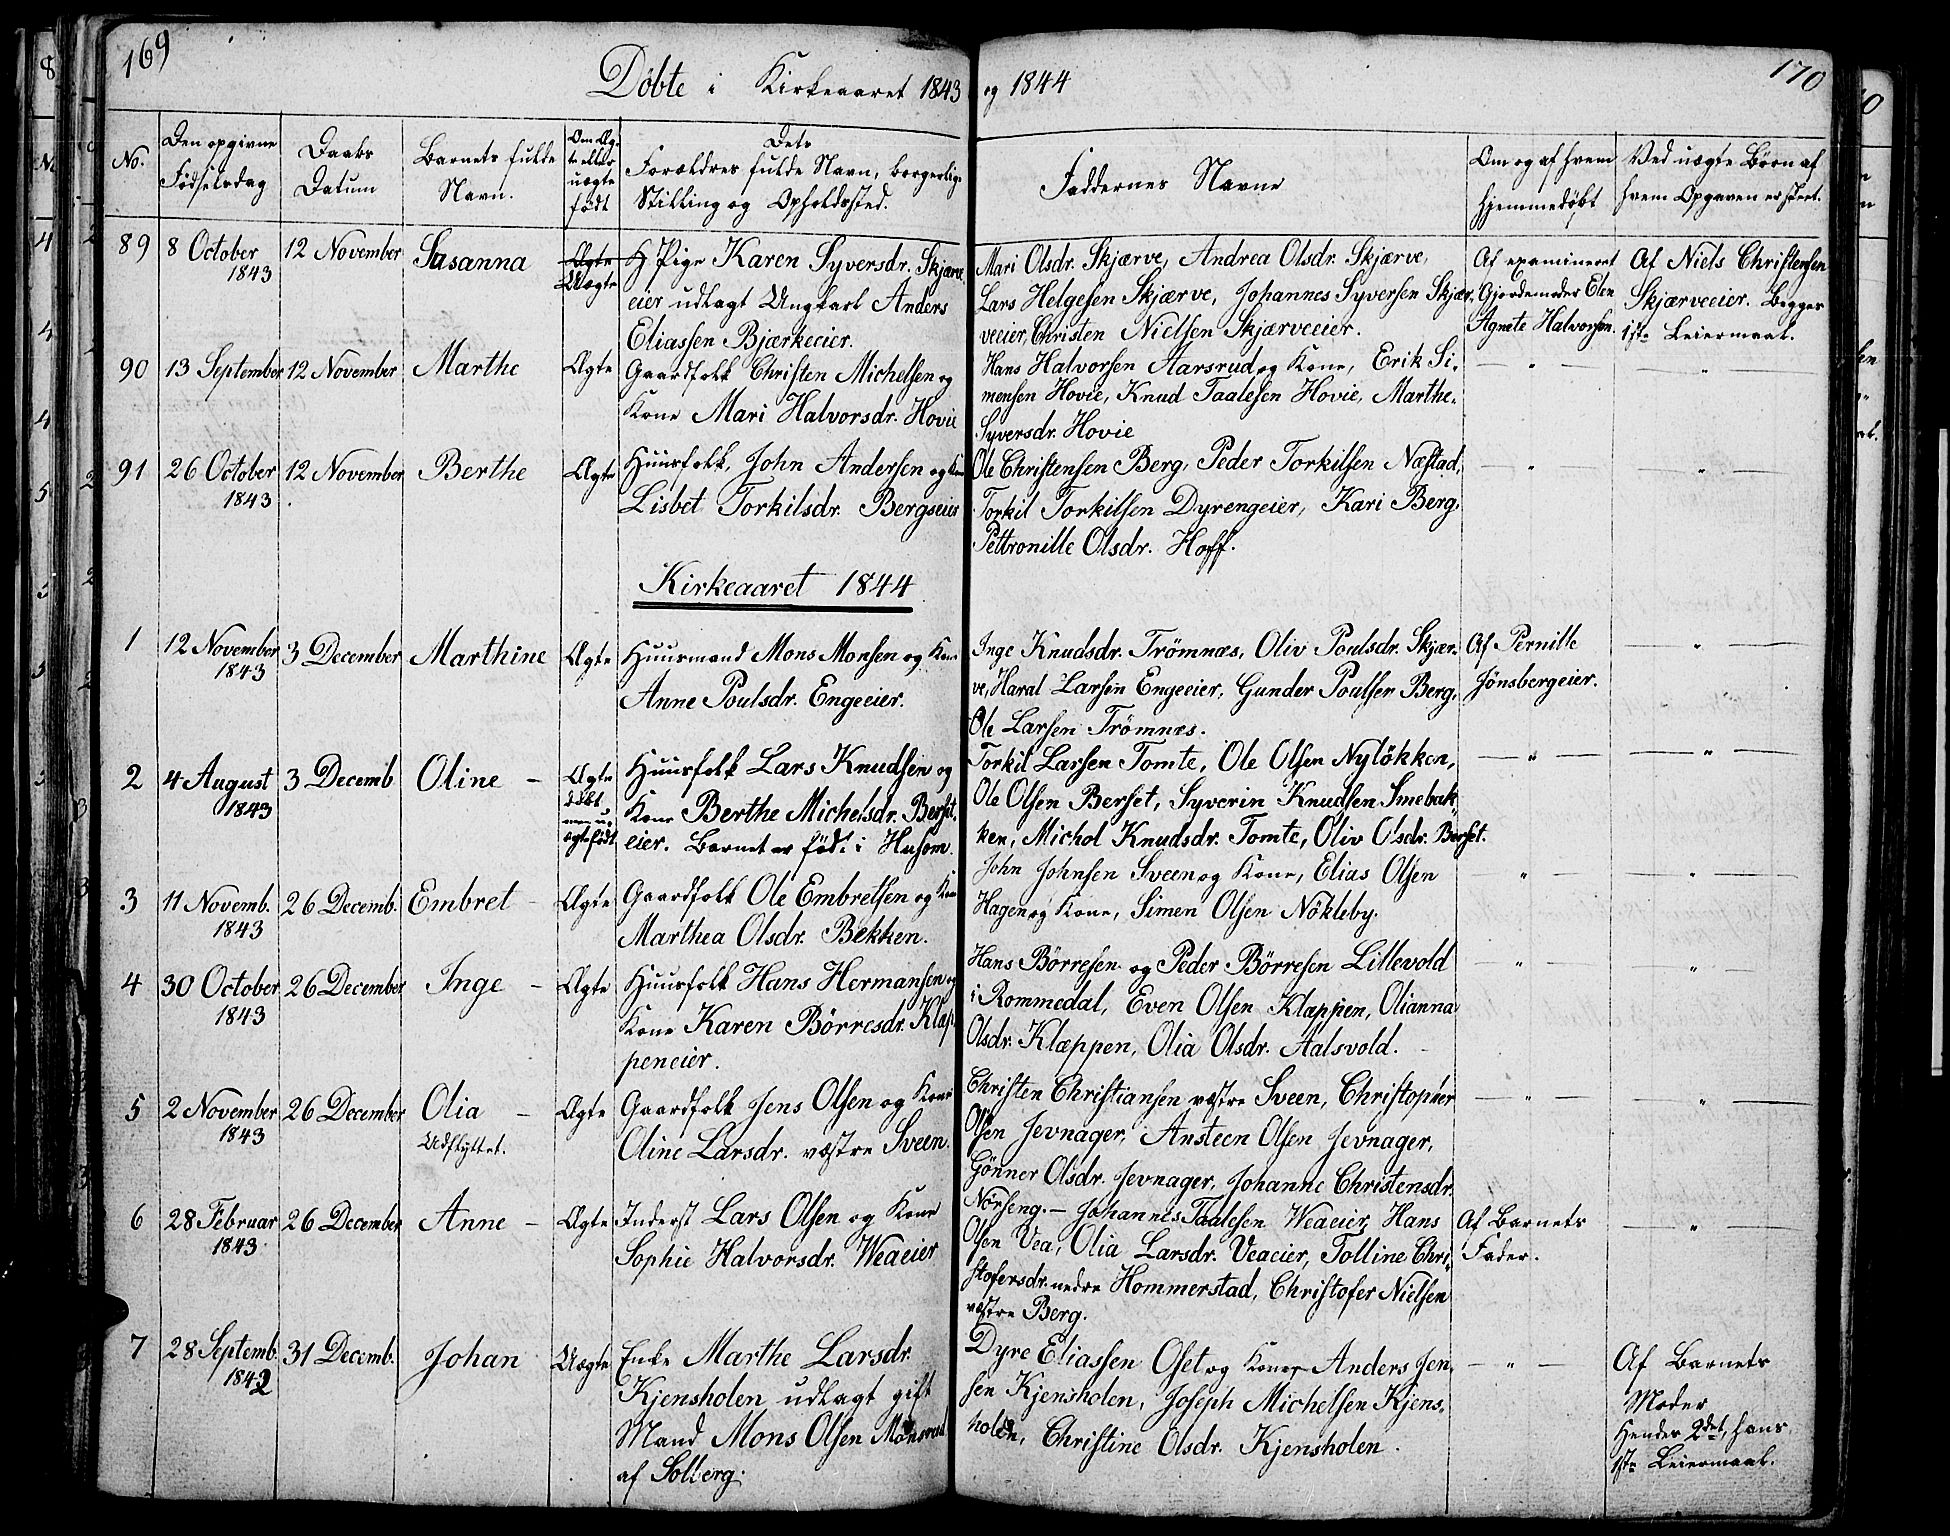 169
Döbte i Kirkeaaret 1843 og 1844
170
No.
Den opgivne
Födselsdag
Daabs
Datum
Barnets fulde
Navn.
Om Æg-
te eller
uægte
födt
Dets
Forældres fulde Navn, borgerlige
Stilling og Opholdssted.
Faddernes Navne
Om og af hvem
hjemmedöbt
Ved uægte Börn af
hvem Opgaven er skeet.
89
8 October
1843
12 November
Susanna
Ægte
Uægte
Pige Karen Syversdr. Skjærve
eier udlagt Ungkarl Anders
Eliassen Bjærkeeier.
Mari Olsdr. Skjærve, Andrea Olsdr. Skjærve,
Lars Helgesen Skjærve, Johannes Syversen Skjær-
veeier, Christen Nielsen Skjærveeier.
Af examineret
Gjordemoder Elen
Agnete Halvorsen.
Af Niels Christensen
Skjærveeier. Begges
1ste Leiermaal.
90
13 September
12 November
Marthe
Ægte
Gaardfolk Christen Michelsen og
Kone Mari Halvorsdr. Hovie
Hans Halvorsen Aarsrud og Kone, Erik Si-
mensen Hovie, Knud Taalesen Hovie, Marthe
Syversdr. Hovie
— " —
— " —
91
26 October
1843
12 November
Berthe
Ægte
Huusfolk, John Andersen og Kone
Lisbet Torkilsdr. Bergseier
Ole Christensen Berg, Peder Torkilsen Næstad,
Torkil Torkilsen Dyrengeier, Kari Berg,
Pettronille Olsdr. Hoff.
— " —
— " —
Kirkeaaret 1844
1
12 November
1843
3 December
Marthine
Ægte
Huusmand Mons Monsen og Kone
Anne Poulsdr. Engeeier.
Inge Knudsdr. Trömnæs, Oliv Poulsdr. Skjær-
ve, Haral Larsen Engeeier, Gunder Poulsen Berg,
Ole Larsen Trömnæs.
Af Pernille
Jönsbergeier.
— " —
2
4 August
1843
3 Decemb
Oline —
Ægte
men u-
ægte født
Huusfolk Lars Knudsen og
Kone Berthe Michelsdr. Berset-
eier. Barnet er født i Husom.
Torkil Larsen Tomte, Ole Olsen Nylökken,
Ole Olsen Berset, Syverin Knudsen Smebak-
ken, Michol Knudsdr. Tomte, Oliv Olsdr. Berset.
— " —
— " —
3
11 Novemb.
1843
26 Decemb.
Embret —
Ægte
Gaardfolk Ole Embretsen og Kone
Marthea Olsdr. Bekken.
John Johnsen Sveen og Kone, Elias Olsen
Hagen og Kone, Simen Olsen Nökleby.
" —
— " —
4
30 October
1843
26 December
Inge —
Ægte
Huusfolk Hans Hermansen og
Kone Karen Börresdr. Klæp-
peneier.
Hans Börresen og Peder Börresen Lillevold
i Rommedal, Even Olsen Klæppen, Olianna
Olsdr. Klæppen, Olia Olsdr. Aalsvold.
— " —
— " —
5
2 November
1843
26 December
Olia —
Udflyttet.
Ægte
Gaardfolk Jens Olsen og Kone
Oline Larsdr. vestre Sveen.
Christen Christiansen vestre Sveen, Christopher
Olsen Jevnager, Ansteen Olsen Jevnager,
Gönner Olsdr. Jevnager, Johanne Christensdr.
Nörseng.
— " —
— " —
6
28 Februar
1843.
26 December
Anne —
Ægte
Inderst Lars Olsen og Kone
Sophie Halvorsdr. Weaeier
— Johannes Taalesen Weaeier, Hans
Olsen Vea, Olia Larsdr. Veaeier, Tolline Chri-
stofersdr. nedre Hommerstad, Christofer Nielsen
vestre Berg.
Af Barnets
Fader.
— " —
7
28 Septemb.
1842
31 Decemb.
Johan
Uægte
Enke Marthe Larsdr.
Kjensholen udlagt gift
Mand Mons Olsen
af Solberg.
Dyre Eliassen Oset og Kone, Anders Jen-
sen Kjensholen, Joseph Michelsen Kjens-
holen, Christine Olsdr. Kjensholen.
— " —
Af Barnets
Moder
Hendes 2det, hans
1ste Leiermaal.